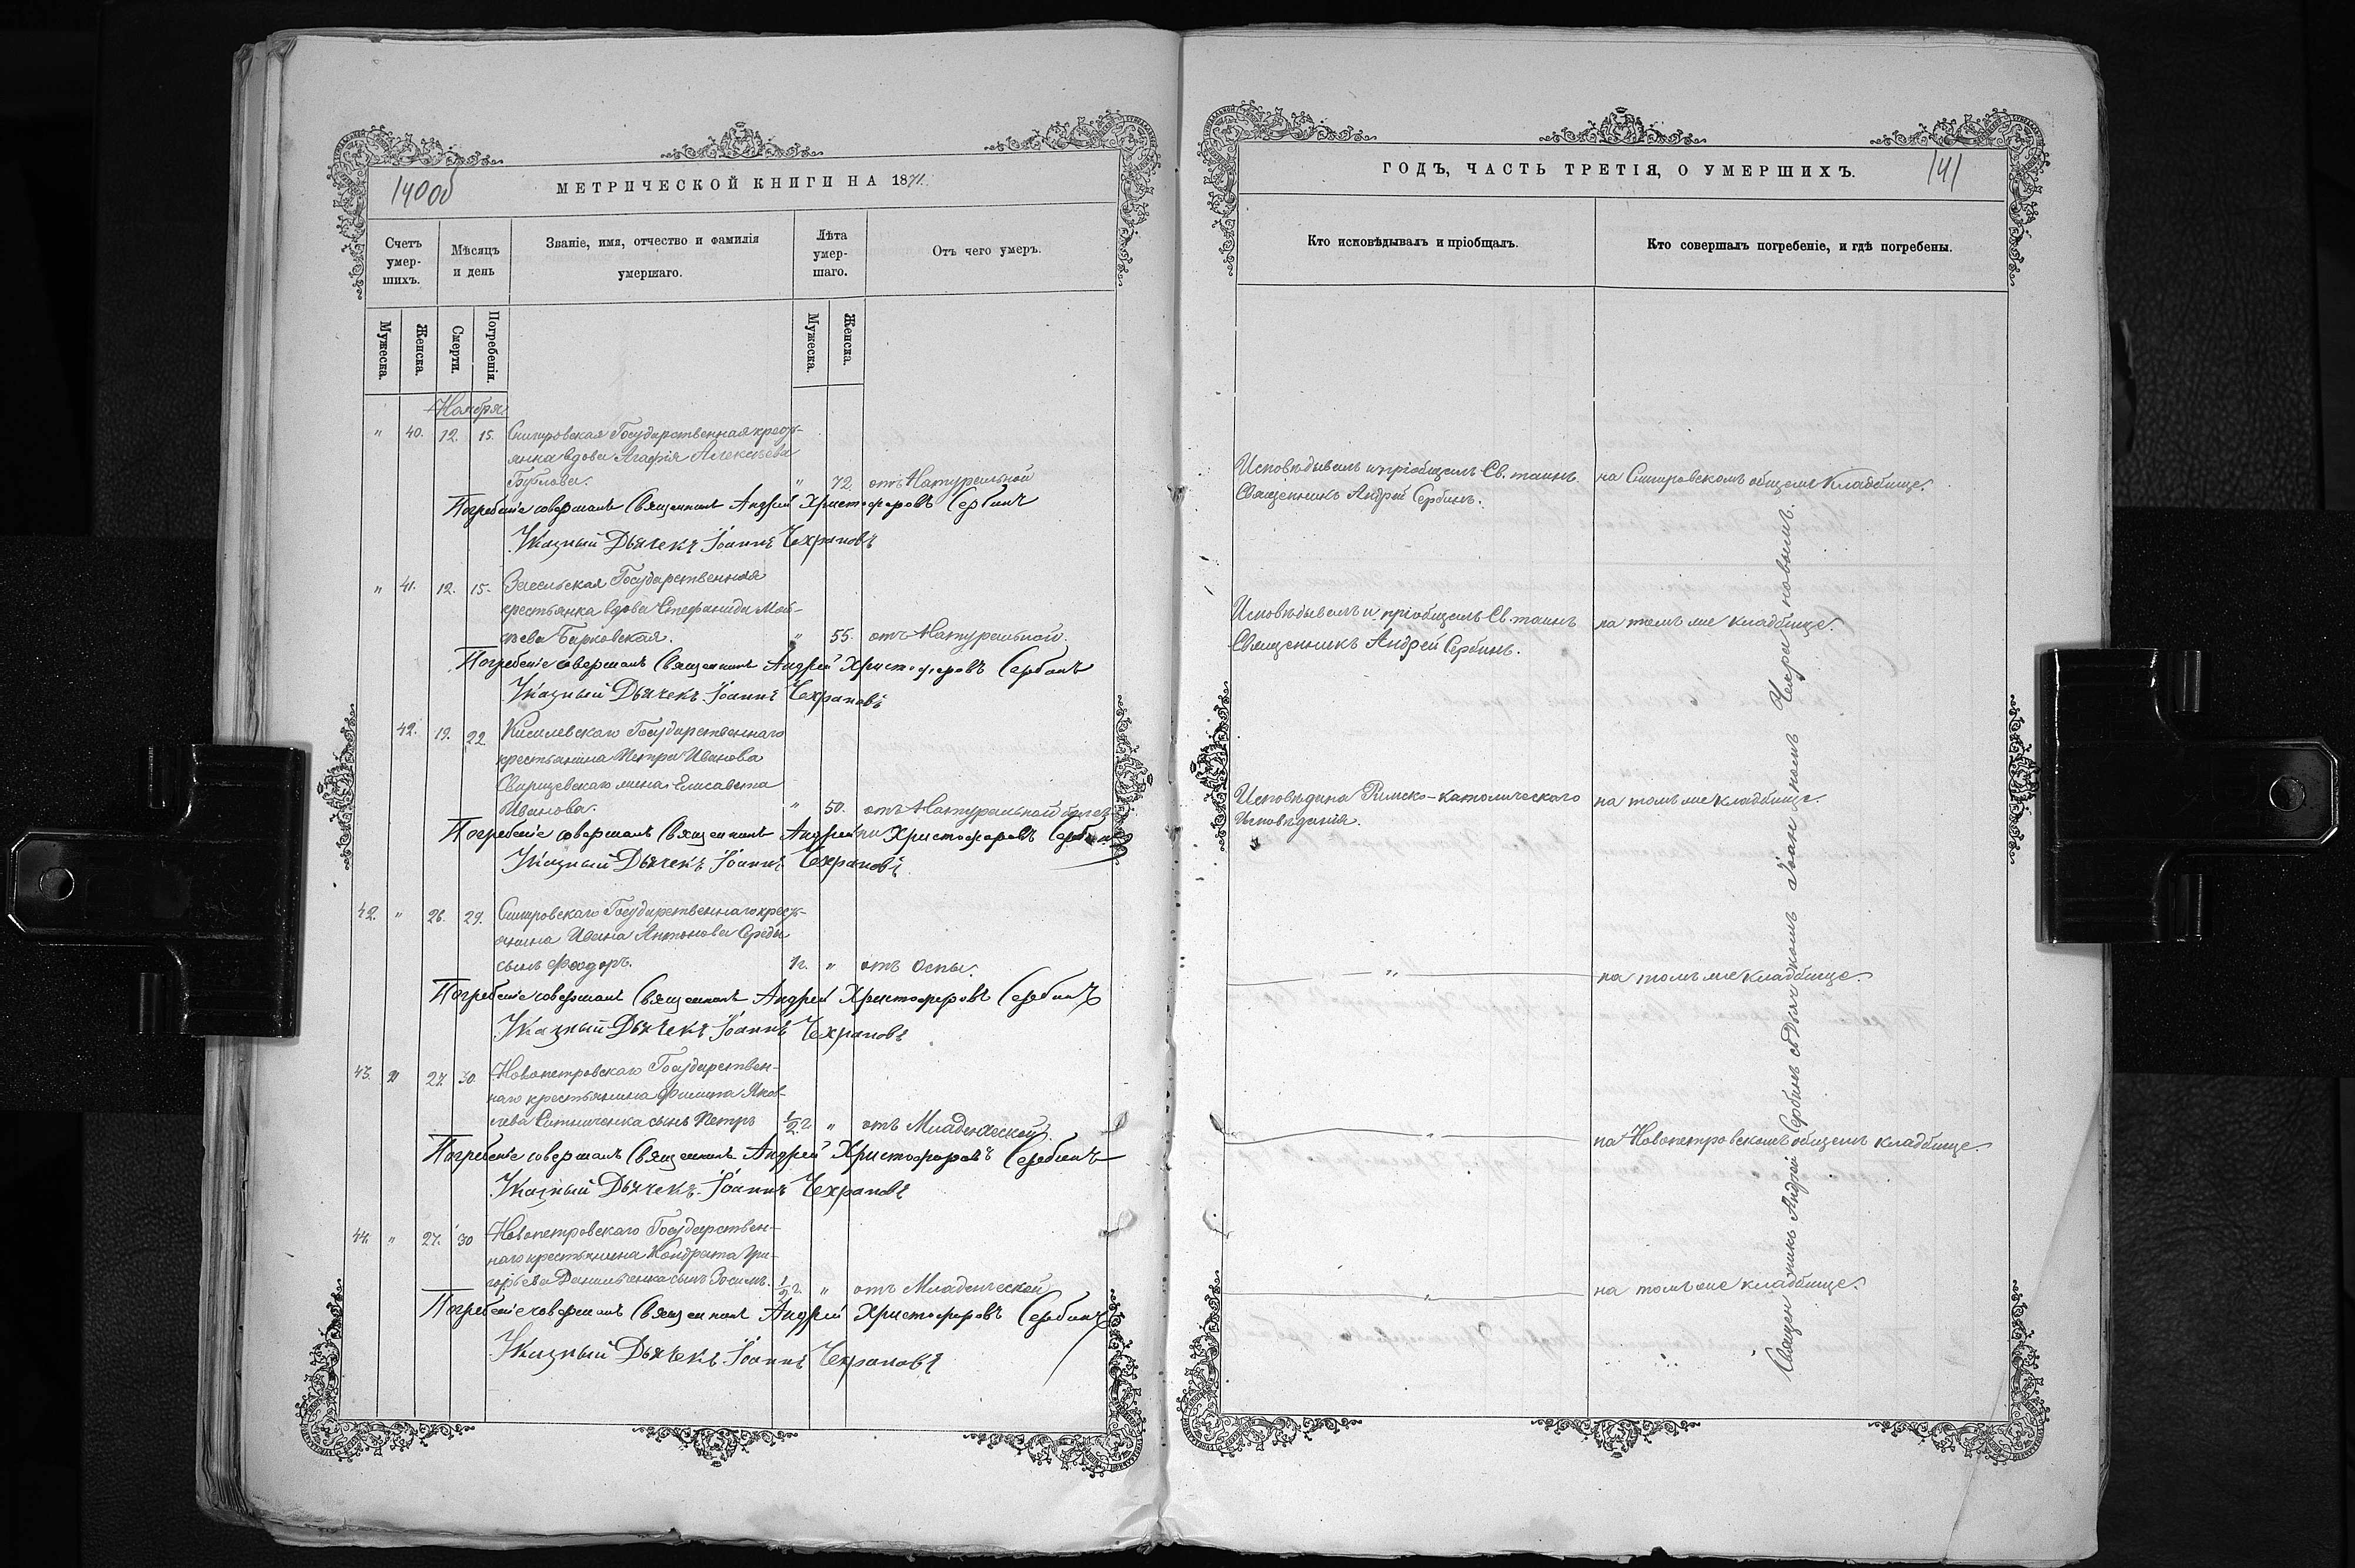 140об
МЕТРИЧЕСКОЙ КНИГИ НА 1871.
Счетъ умер-шихъ.
Мѣсяцъ и день
Званіе, имя, отчество и фамилія умершаго.
Лѣта умер-шаго.
Отъ чего умеръ.
Мужеска.
Женска.
Смерти.
Погребенія.
Мужеска.
Женска.
Ноября
" 40. 12. 15. Государственная крест-
янка вдова Агафія Алексѣева
" 72. отъ Натуральной
Погребеніе совершалъ Священникъ Андрей Христофоровъ Сербинъ
Указный Дьячекъ Іоаннъ Чехрановъ
" 41. 12. 15. Государственная
крестьянка вдова Стефанида Мат-
ѣева Барковская. " 55. отъ Натуральной.
Погребеніе совершалъ Священникъ Андрей Христофоровъ Сербинъ
Указный Дьячекъ Іоаннъ Чехрановъ
42. 19. 22 Киселевскаго Государственнаго
крестьянина Петра Иванова
жена Елисавета
Иванова. " 50. отъ Натуральной болѣз
ни
Погребеніе совершалъ Священникъ Андрей Христофоровъ Сербинъ
Указный Дьячекъ Іоаннъ Чехрановъ
42. " 26. 29. Государственнаго крест-
янина Ивана Антонова Середы
сынъ Ѳеодоръ. 1г. " отъ Оспы.
Погребеніе совершалъ Священникъ Андрей Христофоровъ Сербинъ
Указный Дьячекъ Іоаннъ Чехрановъ
43. " 27. 30. Новопетровскаго Государствен-
наго крестьянина Филипа Яков-
лева Ситниченка сынъ Петръ 1/2 г " отъ Младенческой
Погребеніе совершалъ Священникъ Андрей Христофоровъ Сербинъ
Указный Дьячекъ Іоаннъ Чехрановъ
44. " 27. 30 Новопетровскаго Государствен-
наго крестьянина Кондрата Гри-
горьева Данильченка сынъ Зосимъ. 1/2 г. " отъ Младенческой
Погребеніе совершалъ Священникъ Андрей Христофоровъ Сербинъ
Указный Дьячекъ Іоаннъ Чехрановъ
ГОДЪ, ЧАСТЬ ТРЕТІЯ, О УМЕРШИХЪ.
141
Кто исповѣдывалъ и пріобщалъ.
Кто совершалъ погребеніе, и гдѣ погребены.
Исповѣдывалъ и пріобщалъ Св. таинъ
Священникъ Андрей Сербинъ.
на общемъ кладбище.
Исповѣдывалъ и пріобщалъ Св. таинъ
Священникъ Андрей Сербинъ.
на томъ же кладбище.
Исповѣдана Римско-католическаго
Исповѣданія.
на томъ же кладбище.
"
на томъ же кладбище.
"
на Новопетровскомъ общемъ кладбище.
"
на томъ же кладбище.
Священникъ Андрей Сербинъ съ Дьячкомъ Іоанномъ Чехрановымъ.